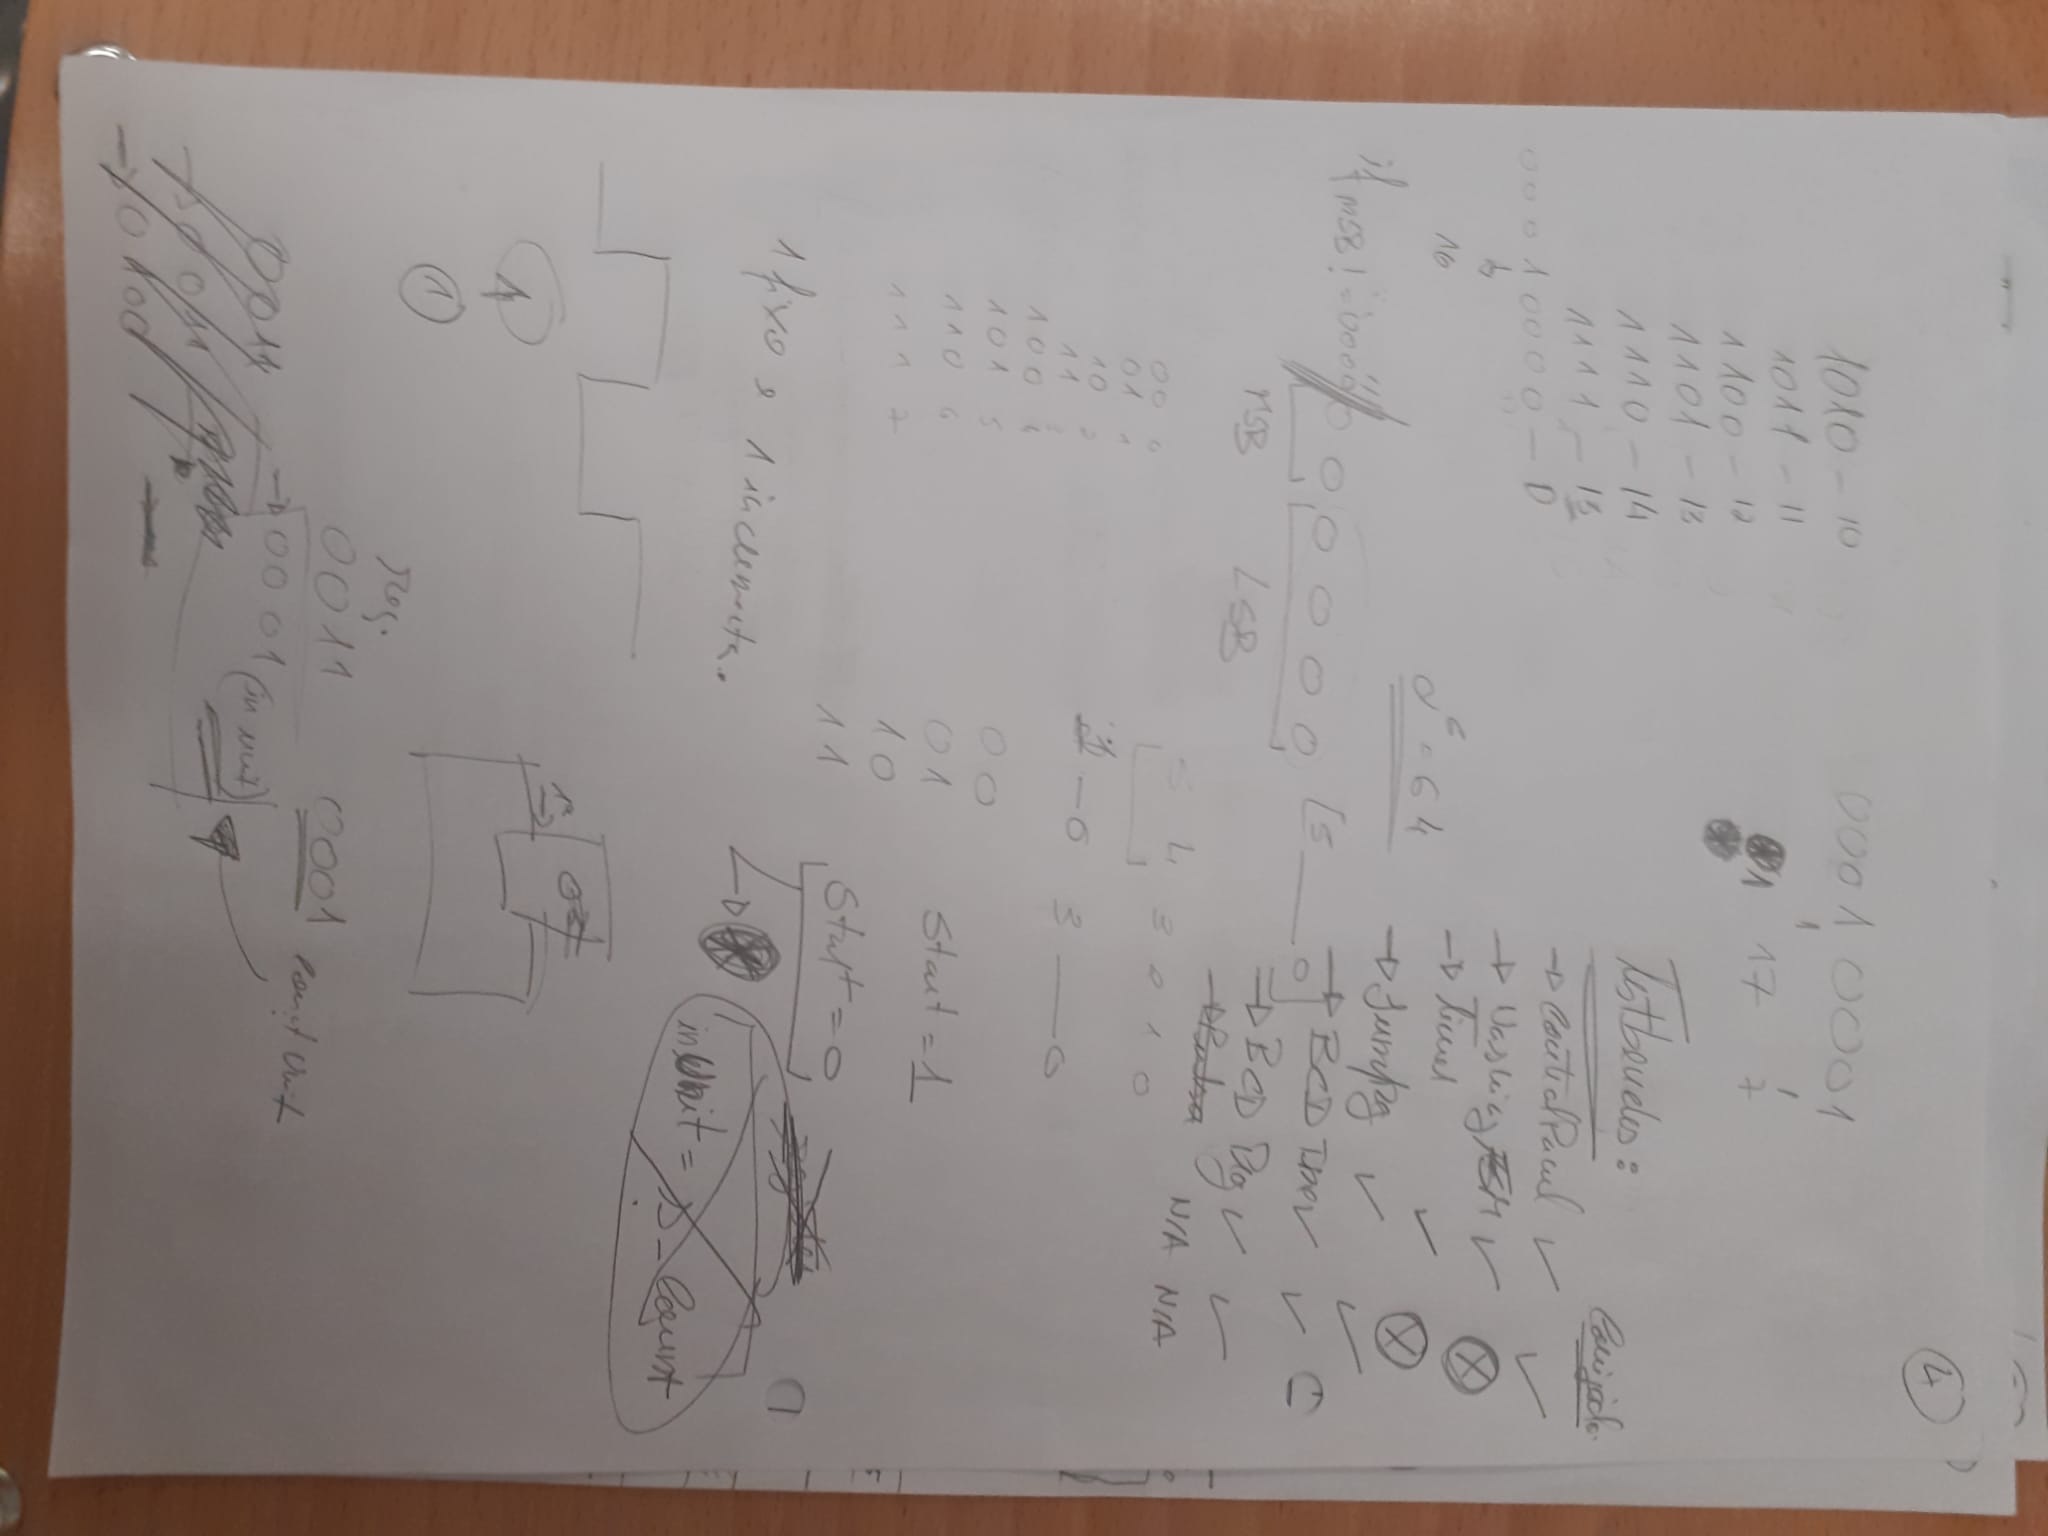 4
1010 - 10
1011 - 11
1100 - 12
1101 - 13
1110 - 14
1111 - 15
00010000 - D
16
0001 0001
1
1 17 7
Testbenches:
Corrigido
→ Control Panel ✓ ✓
→ Washing FSM ✓ ⊗
→ Timer ✓ ⊗
→ Jump Reg ✓ ✓
→ BCD Timer ✓ ✓
→ BCD Reg ✓ ✓
N/A N/A
2^6 = 64
if MSB != "0000"
0 0 0 0 0 0 [5 — 0]
MSB LSB
5 4 3 2 1 0
1 - 0 3 — 0
00 0
01 1
10 2
11 3
100 4
101 5
110 6
111 7
00
01
10
11
Start = 1
Start = 0
inUnit = s_Count
1 fixo e 1 incrementa.
1
1
Reg.
0011
→ 0001 (in unit)
0001 Const Unit
0011
→ 0011
→ 0100